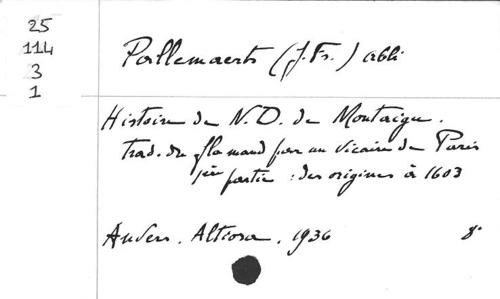 25
114
3
1
Pallemaerts (J. Fr.) abbé
Histoire de N. D. de Montaigu.
trad. du flamand par un vicaire de Paris
1ère partie : des origines à 1603
Anvers. Altiora. 1936 8°